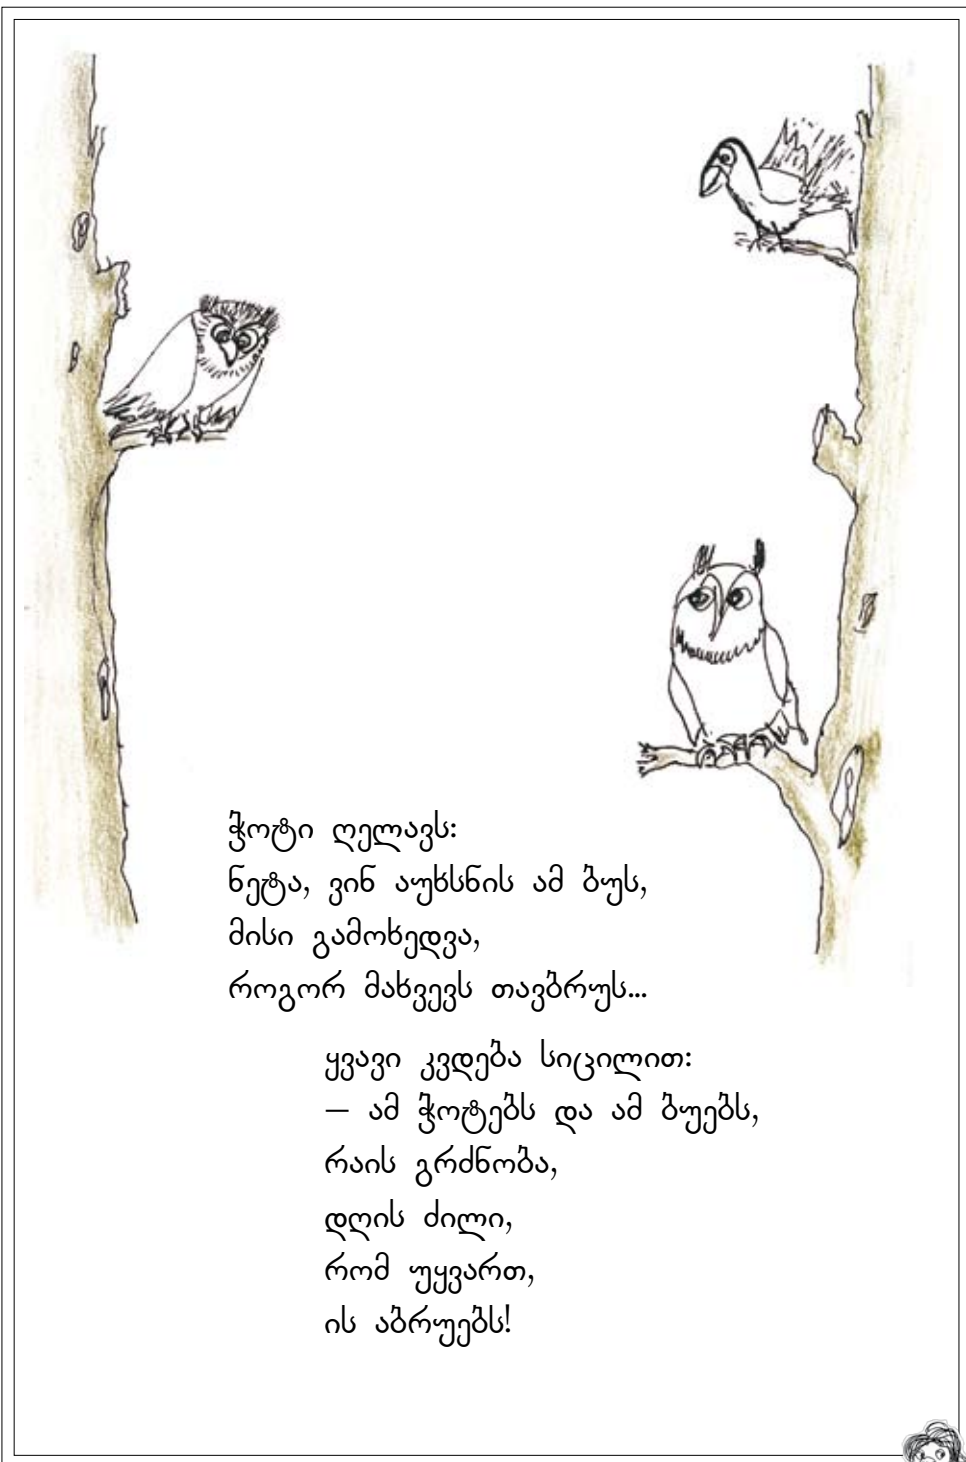 ჭოტი ღელავს:
ნეტა, ვინ აუხსნის ამ ბუს,
მისი გამოხედვა,
როგორ მახვევს თავბრუს...
ყვავი კვდება სიცილით:
— ამ ჭოტებს და ამ ბუებს,
რაის გრძნობა,
დღის ძილი,
რომ უყვართ,
ის აბრუებს!